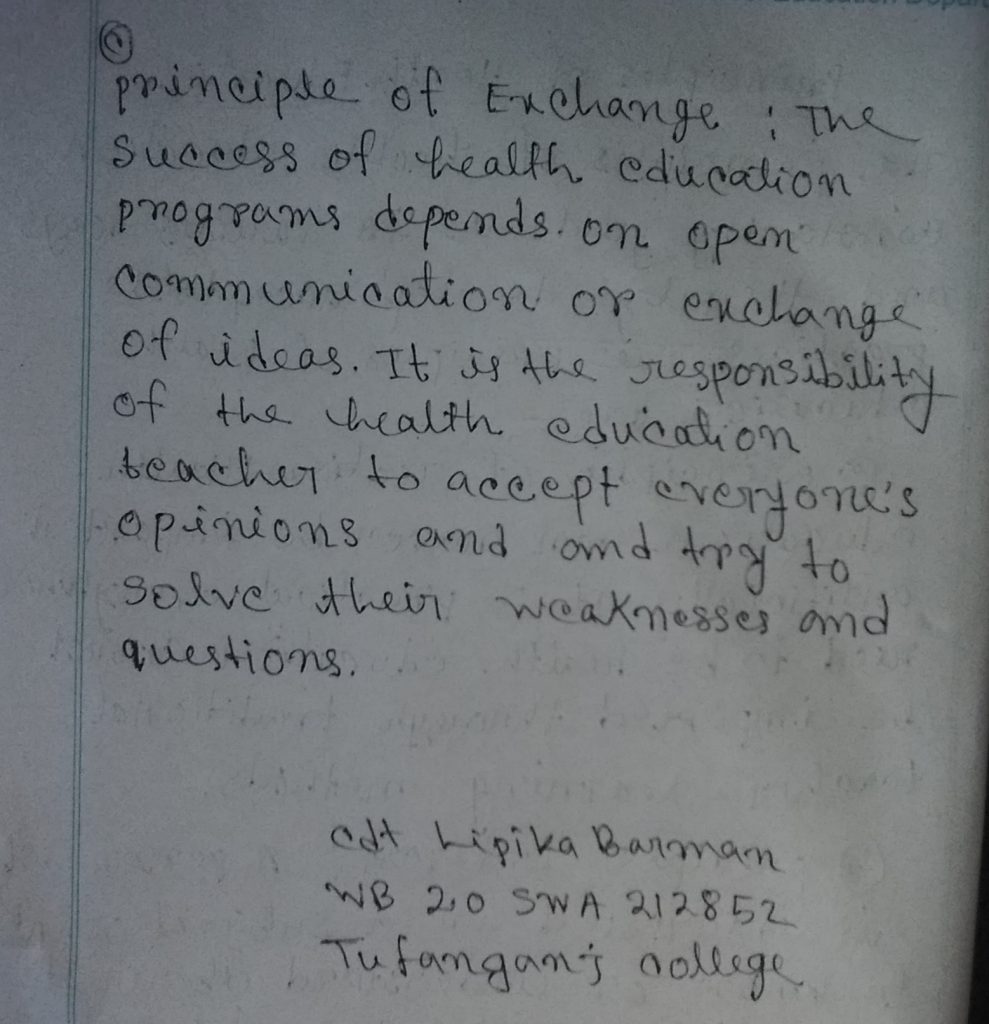 Education Depart
①
principle of Exchange : The
Success of health education
programs depends. on open
communication or exchange
of ideas. It is the responsibility
of the health education
teacher to accept everyone's
opinions and and try to
solve their weaknesses and
questions.
cdt Lipika Barman
WB 20 SWA 212852
Tufanganj college